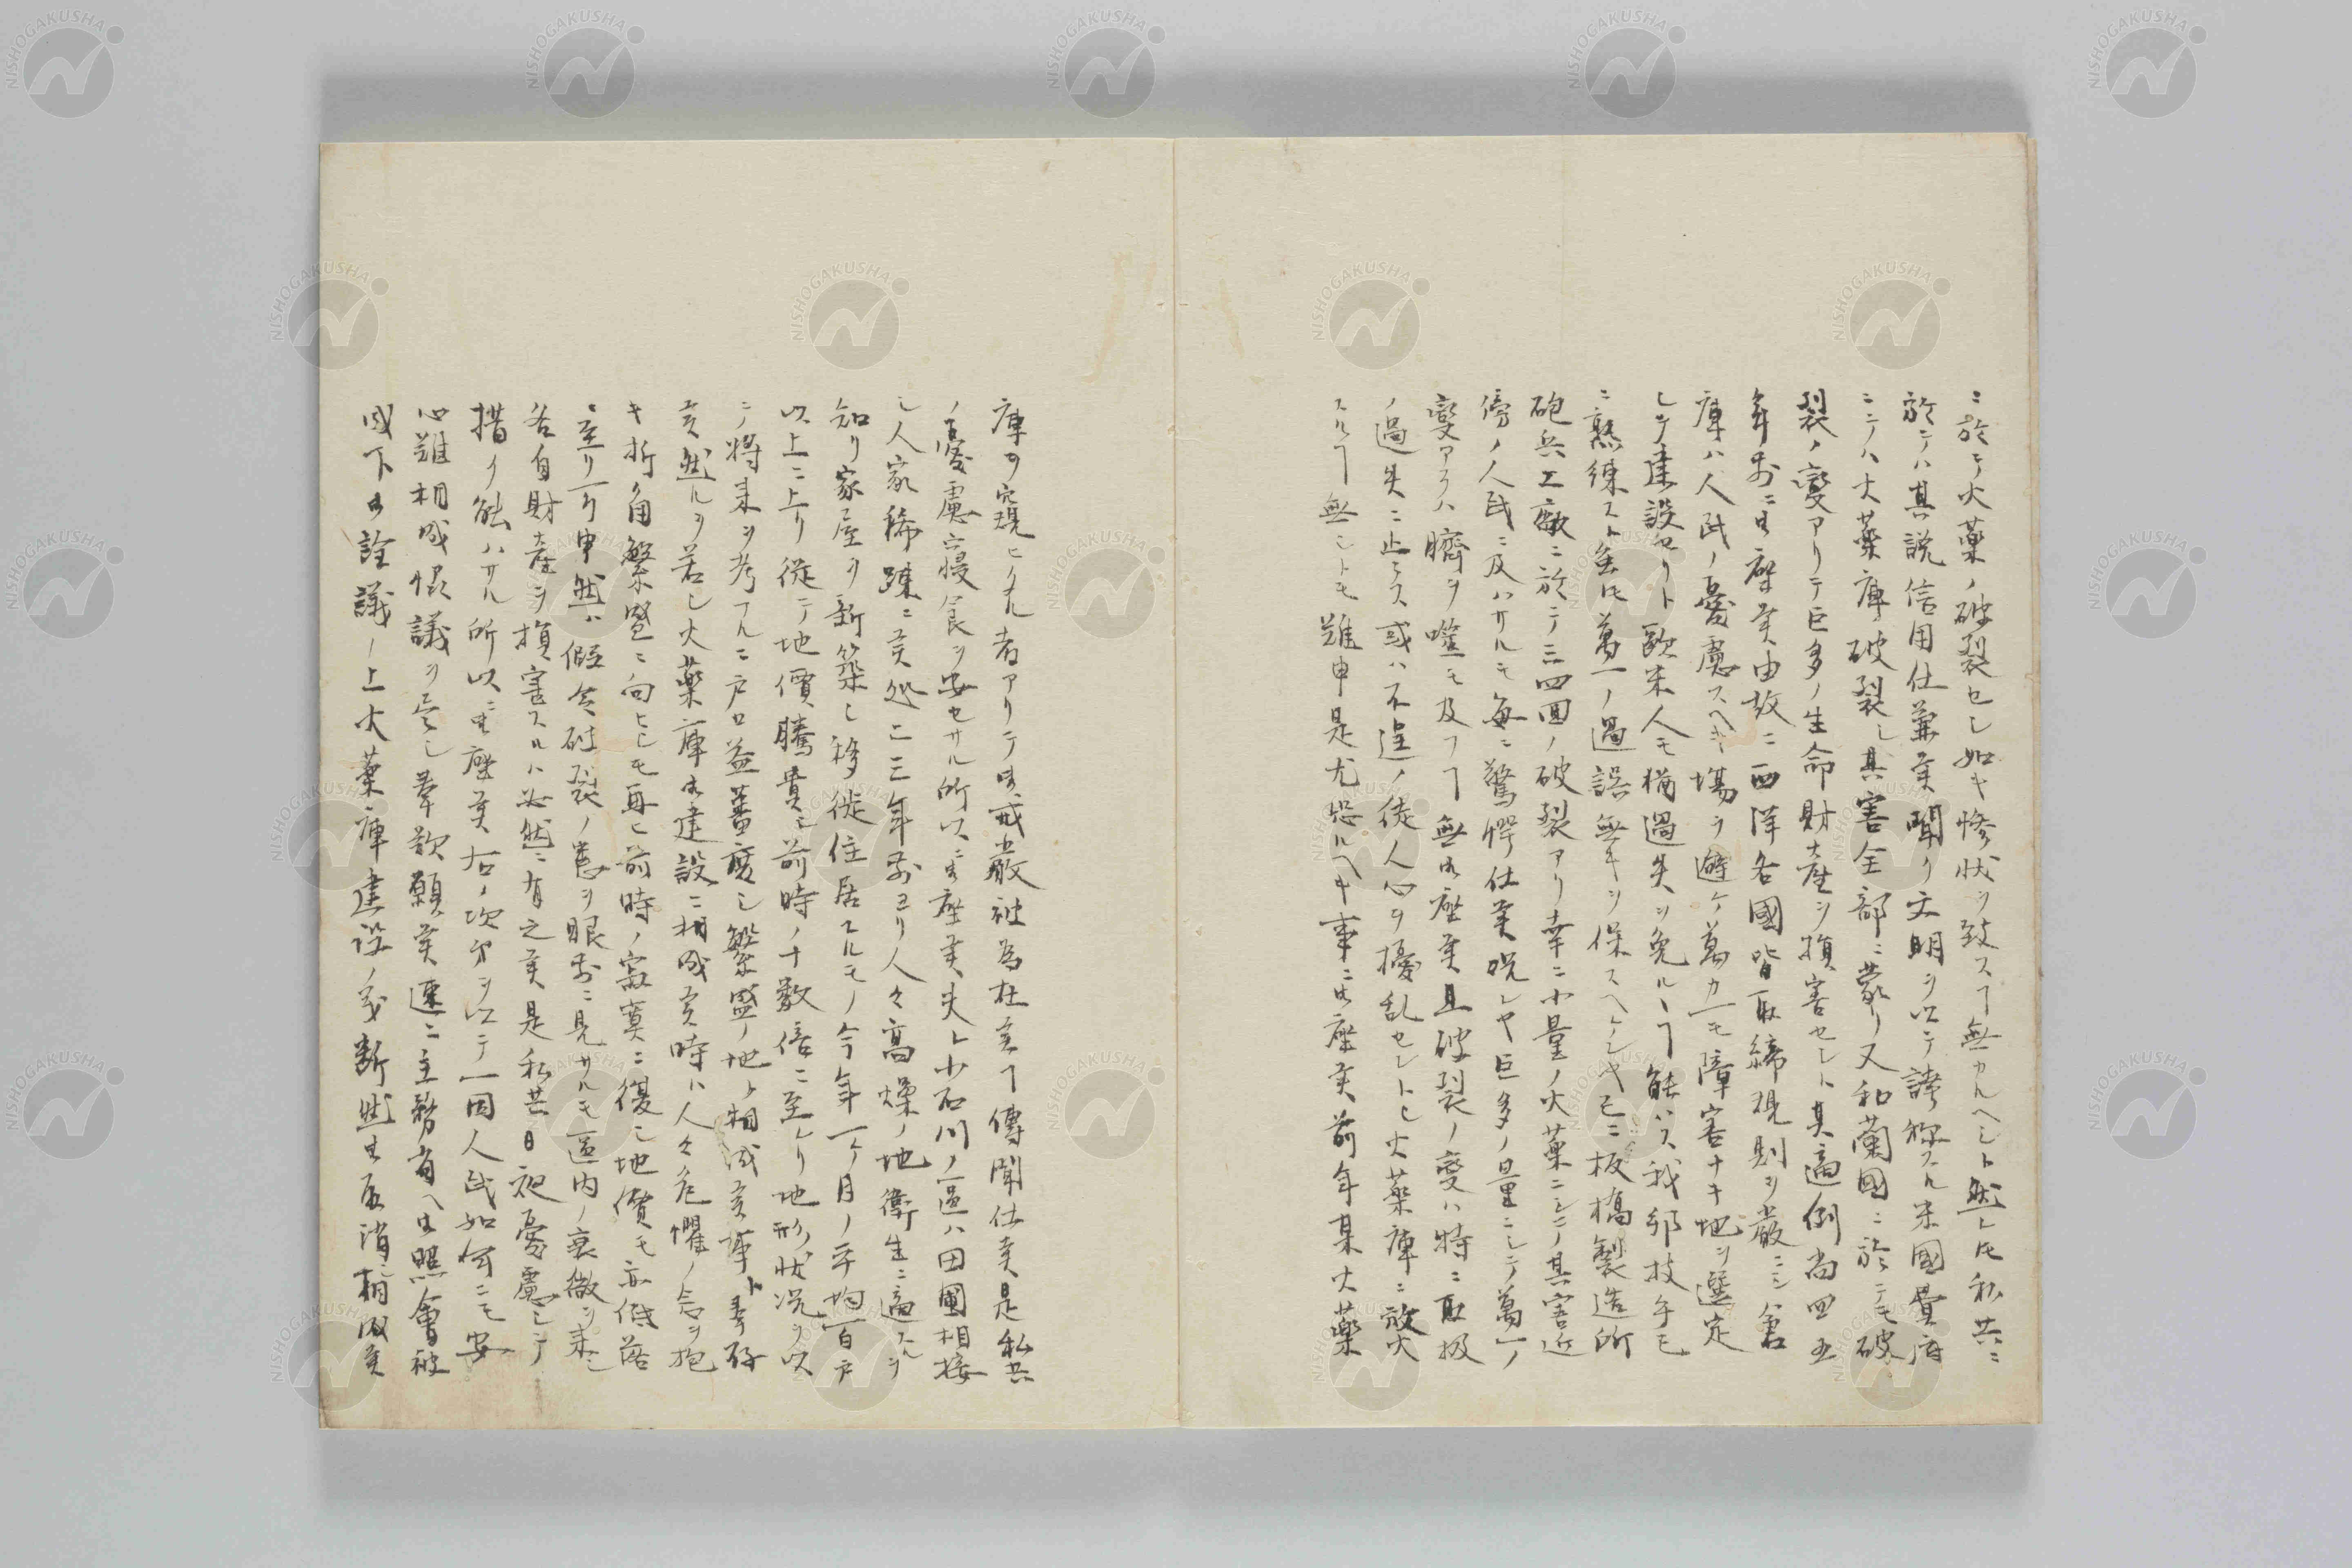 ニ於テ火藥ノ破裂セシ如キ惨状ヲ致スヿ無カルヘシト然レ𪜈私共ニ
於テハ其説信用仕兼候聞ク文明ヲ以テ誇称スル米國費府
ニテハ火藥庫破裂シ其害全部ニ蒙リ又和蘭國ニ於テモ破
裂ノ變アリテ巨多ノ生命財産ヲ損害セシト其適例尚四五
年前ニ御座候由故ニ西洋各國皆取締規則ヲ嚴ニシ倉
庫ハ人民ノ憂慮スヘキ場ヲ避ケ萬カ一モ障害ナキ地ヲ選定
シテ建設セリト歐米人モ猶過失ヲ免ルヽヿ能ハス我邦技手モ
ニ熟練スト雖𪜈萬一ノ過誤無キヲ保スヘケンヤ已ニ板橋製造所
砲兵工廠ニ於テ三四回ノ破裂アリ幸ニ小量ノ火藥ニシテ其害近
傍ノ人民ニ及ハサルモ毎ニ驚愕仕候況ンヤ巨多ノ量ニシテ萬一ノ
變アラハ臍ヲ噬モ及フヿ無御座候且破裂ノ變ハ特ニ取扱
ノ過失ニ止ラス或ハ不逞ノ徒人心ヲ擾乱セントシ火藥庫ニ放火
スルヿ無シトモ難申是尤恐ルヘキ事ニ御座候前年某火藥
庫ヲ窺ヒタル者アリテ御戒嚴被為在候ヿ傳聞仕候是私共
ノ憂慮寝食ヲ安セサル所以ニ御座候夫レ小石川ノ區ハ田圃相接
シ人家稀踈ニ候処二三年前ヨリ人々高燥ノ地衛生ニ適スルヲ
知リ家屋ヲ新築シ移徙住居スルモノ今年一ケ月ノ平均百戸
以上ニ上リ従テ地價騰貴シ前時ノ十数倍ニ至レリ地形状况ヲ以
テ将来ヲ考フルニ戸口益蕃庶シ繁盛ノ地ト相成候事ト奉存
候然ルヲ若シ火藥庫御建設ニ相成候時ハ人々危懼ノ念ヲ抱
キ折角繁盛ニ向ヒシモ再ヒ前時ノ寂寞ニ復シ地價モ亦低落
ニ至リ可申然ハ假令破裂ノ患ヲ眼前ニ見サルモ區内ノ衰微ヲ来シ
各自財産ヲ損害スルハ必然ニ有之候是私共日夜憂慮シテ
措ク能ハサル所以ニ御座候右ノ次第ヲ以テ一因人民如何ニモ安
心難相成愼議ヲ尽シ奉歎願候速ニ主務省ヘ御照會被
成下御詮議ノ上火藥庫建設ノ義断然御取消相成候
NISHOGAKUSHA